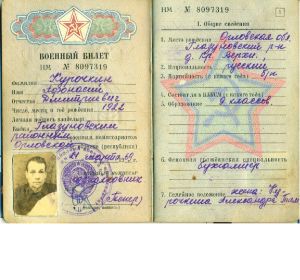 ВОЕННЫЙ БИЛЕТ
НМ № 8097319
Фамилия Курочкин
Имя Афонасий
Отчество Дмитриевич
Число, месяц и год рождения 1922
Личная подпись владельца
Выдан Глазуновским
районным
Орловской
21 марта 69
подполковник
НМ № 8097319
1
I. Общие сведения
1. Место рождения Орловская обл.
Глазуновский р-н
д. Кр.
2. Национальность русский
3. Партийность (с какого года) б/п
4. Состоит в ВЛКСМ (с какого года)
5. Образование классов
6. Основная гражданская специальность
бухгалтер
7. Семейное положение жена: Ку-
рочкина Александра